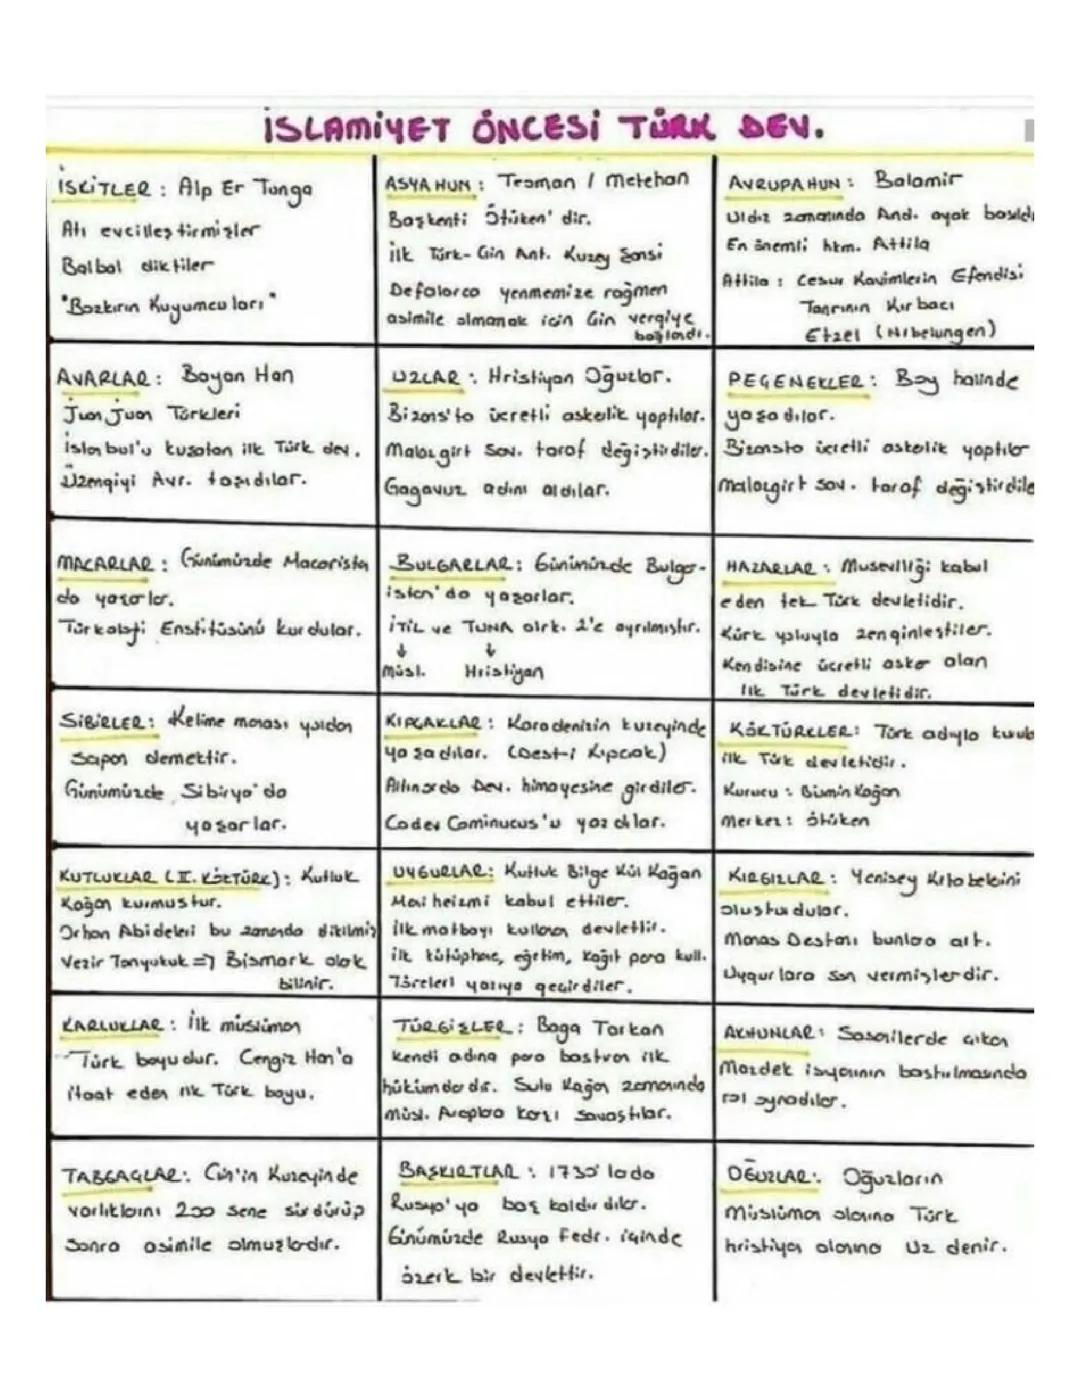 İSLAMİYET ÖNCESİ TÜRK DEV.
İSKİTLER : Alp Er Tunga
Atı evcilleştirmişler
Balbal diktiler
"Bozkırın Kuyumcuları"
ASYA HUN : Teoman / Metehan
Başkenti Ötüken'dir.
İlk Türk-Çin Ant. Kuzey Şansi
Defalarca yenmemize rağmen
asimile olmamak için Çin vergiye
bağlandı.
AVRUPA HUN : Balamir
Uldız zamanında And. ayak basıldı
En önemli hkm. Attila
Attila : Cesur Kavimlerin Efendisi
Tanrının Kırbacı
Etzel (Nibelungen)
AVARLAR : Bayan Han
Juan Juan Türkleri
İstanbul'u kuşatan ilk Türk dev.
Üzengiyi Avr. taşıdılar.
UZLAR : Hristiyan Oğuzlar.
Bizans'ta ücretli askerlik yaptılar.
Malazgirt Sav. taraf değiştirdiler.
Gagavuz adını aldılar.
PEÇENEKLER : Boy halinde
yaşadılar.
Bizansta ücretli askerlik yaptılar
Malazgirt sav. taraf değiştirdile
MACARLAR : Günümüzde Macarista
da yaşarlar.
Türkoloji Enstitüsünü kurdular.
BULGARLAR : Günümüzde Bulgar-
istan'da yaşarlar.
İTİL ve TUNA olrk. 2'e ayrılmıştır.
↓ ↓
Müsl. Hristiyan
HAZARLAR : Museviliği kabul
eden tek Türk devletidir.
Kürk yoluyla zenginleştiler.
Kendisine ücretli asker alan
ilk Türk devletidir.
SİBİRLER : Kelime manası yoldan
sapan demektir.
Günümüzde Sibirya'da
yaşarlar.
KIPÇAKLAR : Karadenizin kuzeyinde
yaşadılar. (Dest-i Kıpçak)
Altınorda Dev. himayesine girdiler.
Codex Cominucus'u yazdılar.
KÖKTÜRKLER : Türk adıyla kurub
ilk Türk devletidir.
Kurucu : Bumin Kağan
Merkez : Ötüken
KUTLUKLAR (II. KÖKTÜRK) : Kutluk
Kağan kurmuştur.
Orhon Abideleri bu zamanda dikilmiş
Vezir Tonyukuk => Bismark olrk
bilinir.
UYGURLAR : Kutluk Bilge Kül Kağan
Maniheizmi kabul ettiler.
İlk matbayı kullanan devlettir.
İlk kütüphane, eğitim, kağıt para kull.
Töreleri yazıya geçirdiler.
KIRGIZLAR : Yenisey Kitabelerini
oluşturdular.
Manas Destanı bunlara ait.
Uygurlara son vermişlerdir.
KARLUKLAR : İlk müslüman
Türk boyudur. Cengiz Han'a
itaat eden ilk Türk boyu.
TÜRGİŞLER : Baga Tarkan
Kendi adına para bastıran ilk
hükümdardır. Sulu Kağan zamanında
müsl. Araplara karşı savaştılar.
AKHUNLAR : Sasanilerde çıkan
Mazdek isyanının bastırılmasında
rol oynadılar.
TABGAÇLAR : Çin'in Kuzeyinde
varlıklarını 200 sene sürdürüp
sonra asimile olmuşlardır.
BAŞKIRTLAR : 1730'larda
Rusya'ya baş kaldırdılar.
Günümüzde Rusya Fedr. içinde
özerk bir devlettir.
OĞUZLAR : Oğuzların
Müslüman olanına Türk
hristiyan olanına Uz denir.